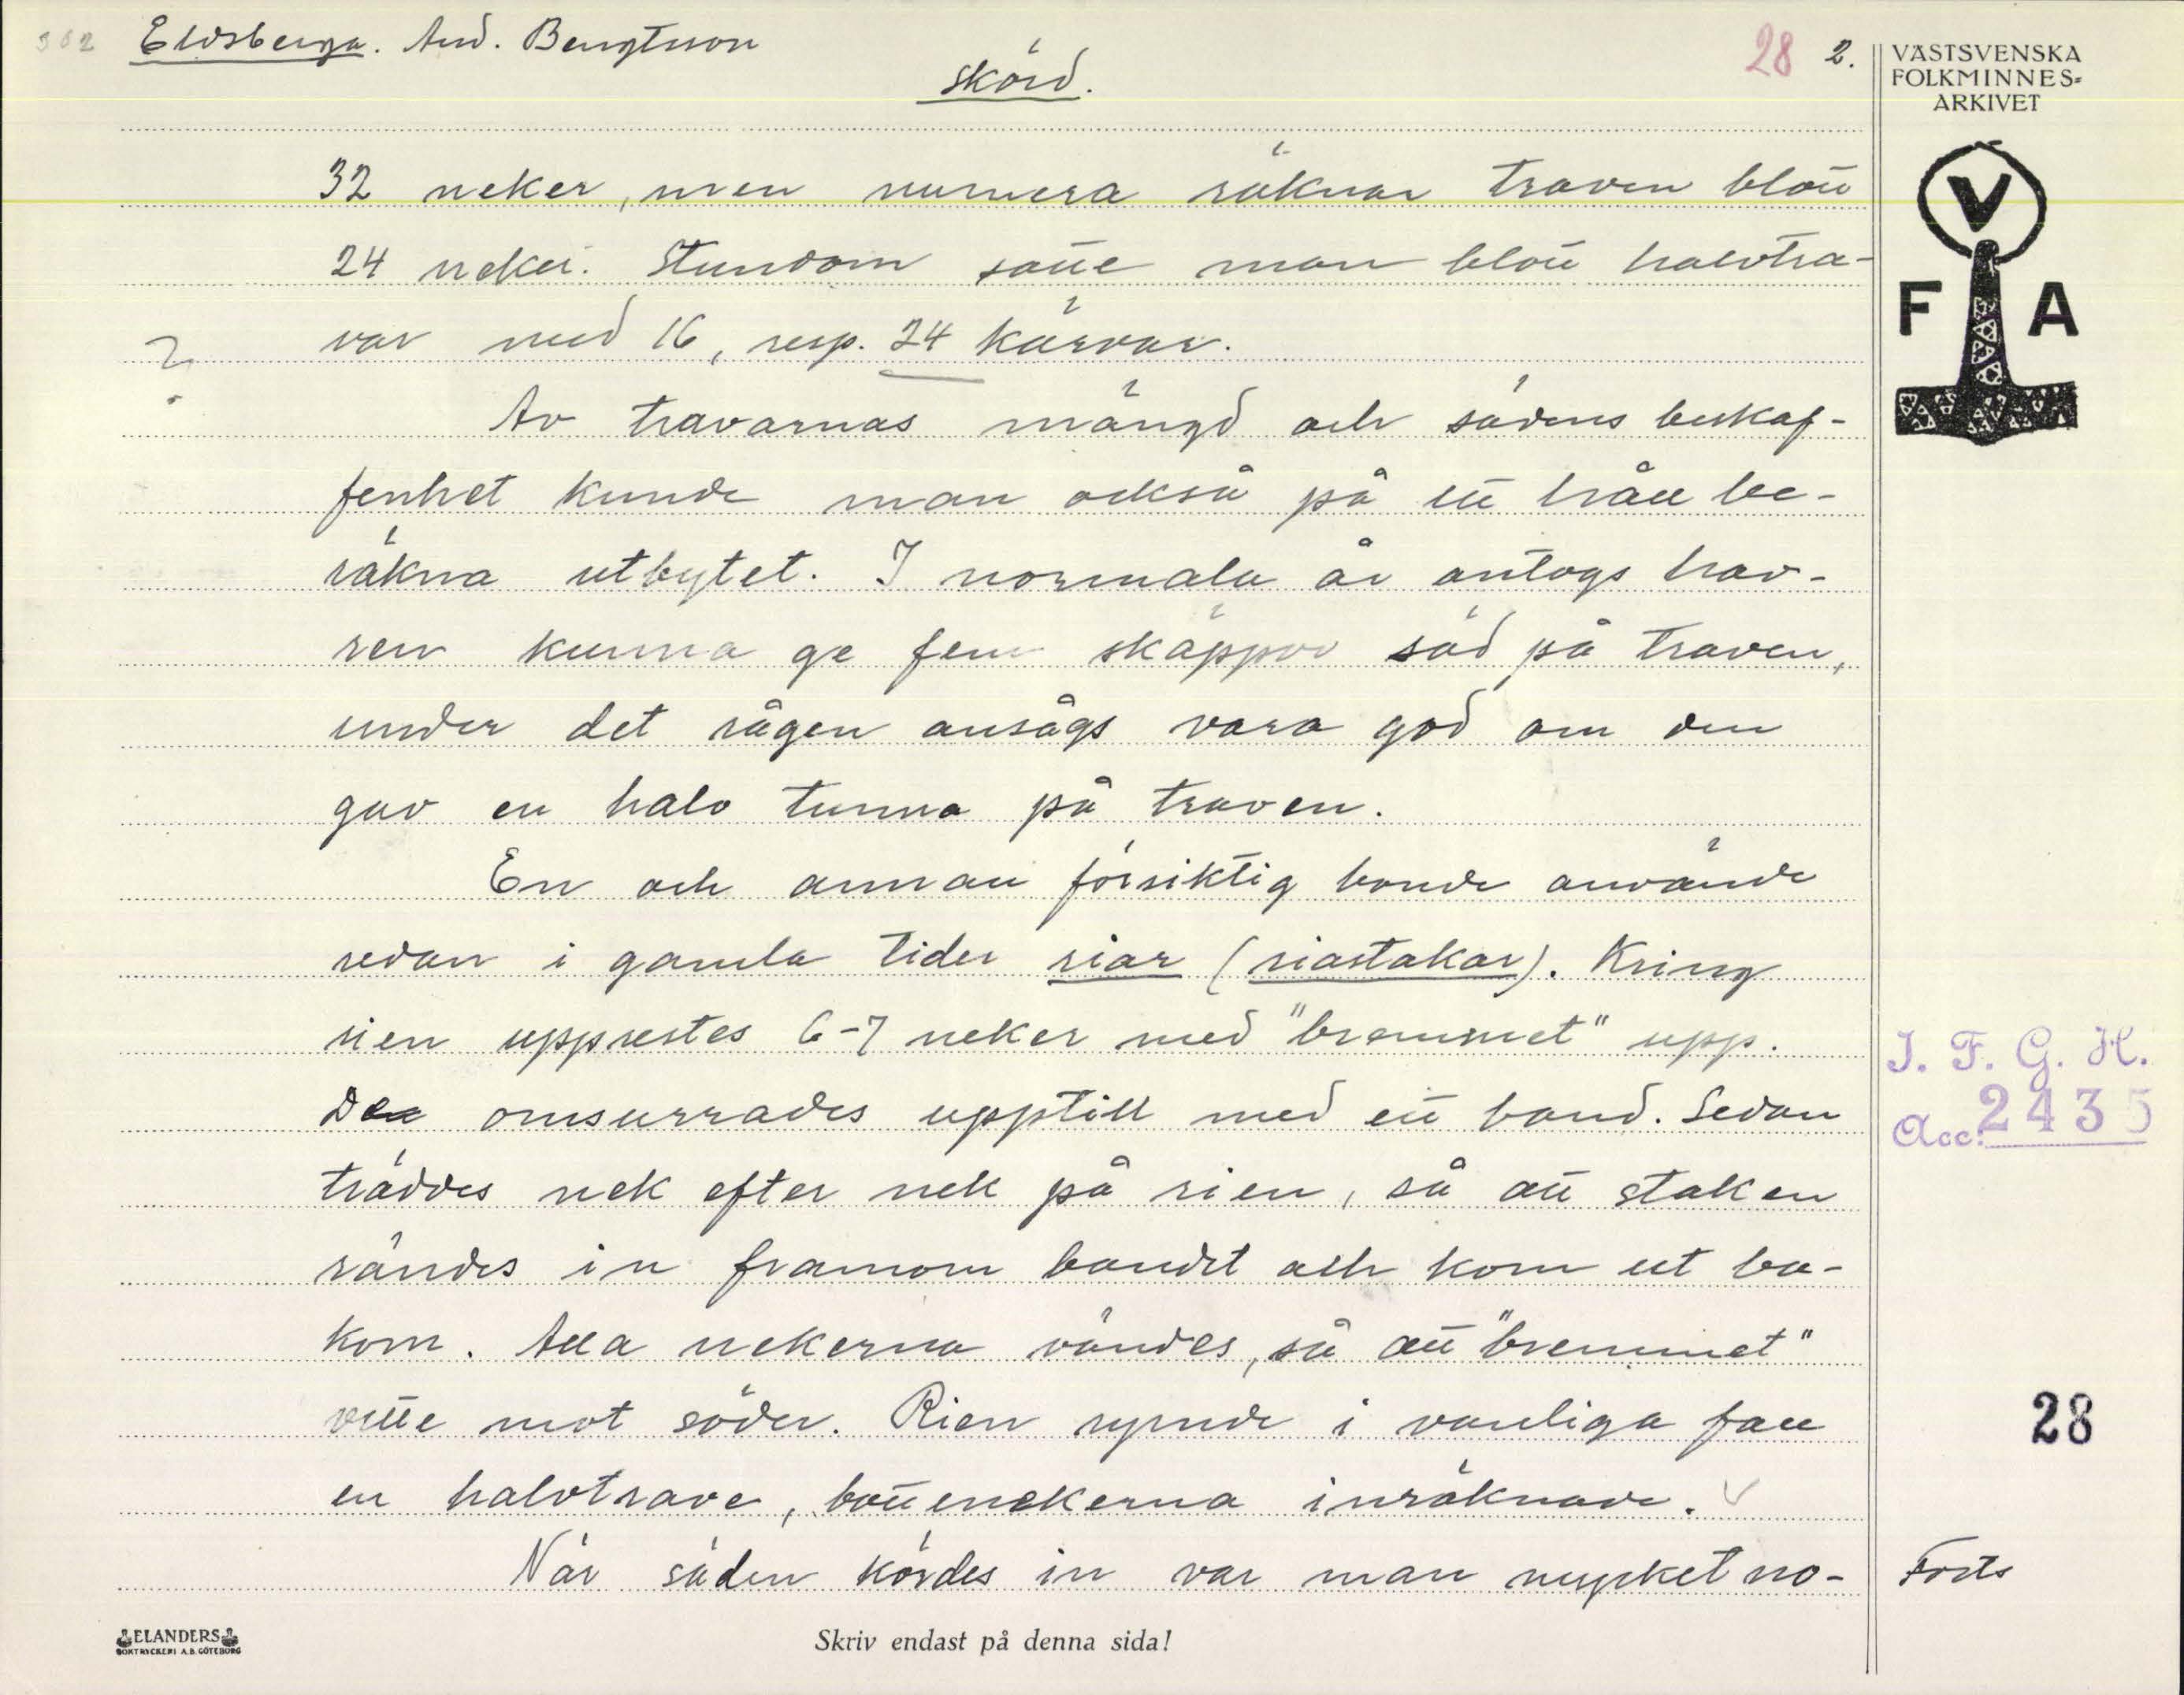 Eldsberga. And. Bengtsson
28 2.
Skörd.
VÄSTSVENSKA
FOLKMINNES=
ARKIVET
V
F A
32 neker, men numera räknar traven blott
24 neker. Stundom satte man blott halvtra-
? var med 16, resp. 24 kärvar.
Av travarnas mängd och sädens beskaf-
fenhet kunde man också på ett håll be-
räkna utbytet. I normala år antogs hav-
ren kunna ge fem skäppor säd på traven,
under det rågen ansågs vara god om den
gav en halv tunna på traven.
En och annan försiktig bonde använde
redan i gamla tider riar (riastakar). Kring
rien upprestes 6-7 neker med "brommet" upp.
De omsurrades upptill med ett band. Sedan
träddes nek efter nek på rien, så att staken
rändes in framom bandet och kom ut ba-
kom. Alla nekerna vändes, så att "bremmet"
vette mot söder. Rien rymde i vanliga fall
en halvtrave, bottenekerna inräknade. V
När säden kördes in var man mycket no-
J. F. G. H.
Acc: 2435
28
Forts
ELANDERS
BOKTRYCKERI A.B. GÖTEBORG
Skriv endast på denna sida!